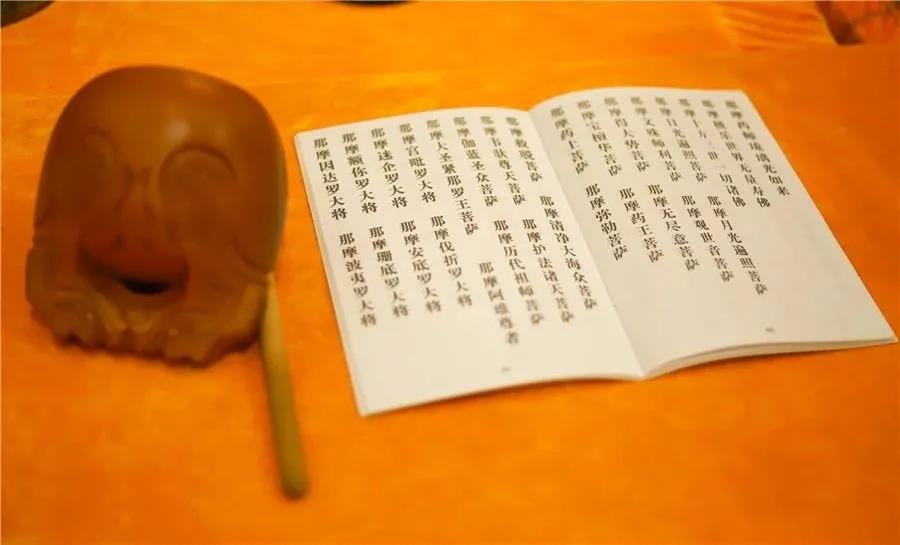 那摩药师琉璃光如来
那摩极乐世界无量寿佛
那摩十方三世一切诸佛
那摩日光遍照菩萨 那摩月光遍照菩萨
那摩文殊师利菩萨 那摩观世音菩萨
那摩得大势菩萨 那摩无尽意菩萨
那摩宝檀华菩萨 那摩药王菩萨
那摩药上菩萨 那摩弥勒菩萨
那摩救脱菩萨 那摩清净大海众菩萨
那摩韦驮尊天菩萨 那摩护法诸天菩萨
那摩伽蓝圣众菩萨 那摩历代祖师菩萨
那摩大圣紧那罗王菩萨 那摩阿难尊者
那摩宫毗罗大将 那摩伐折罗大将
那摩迷企罗大将 那摩安底罗大将
那摩额你罗大将 那摩珊底罗大将
那摩因达罗大将 那摩波夷罗大将